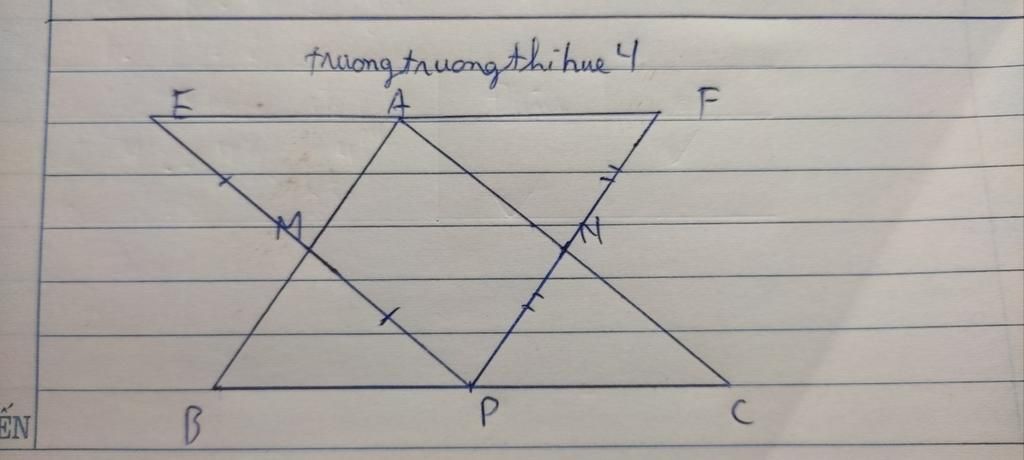 truongtruongthihue4
E A F
M N
B P C
ẾN